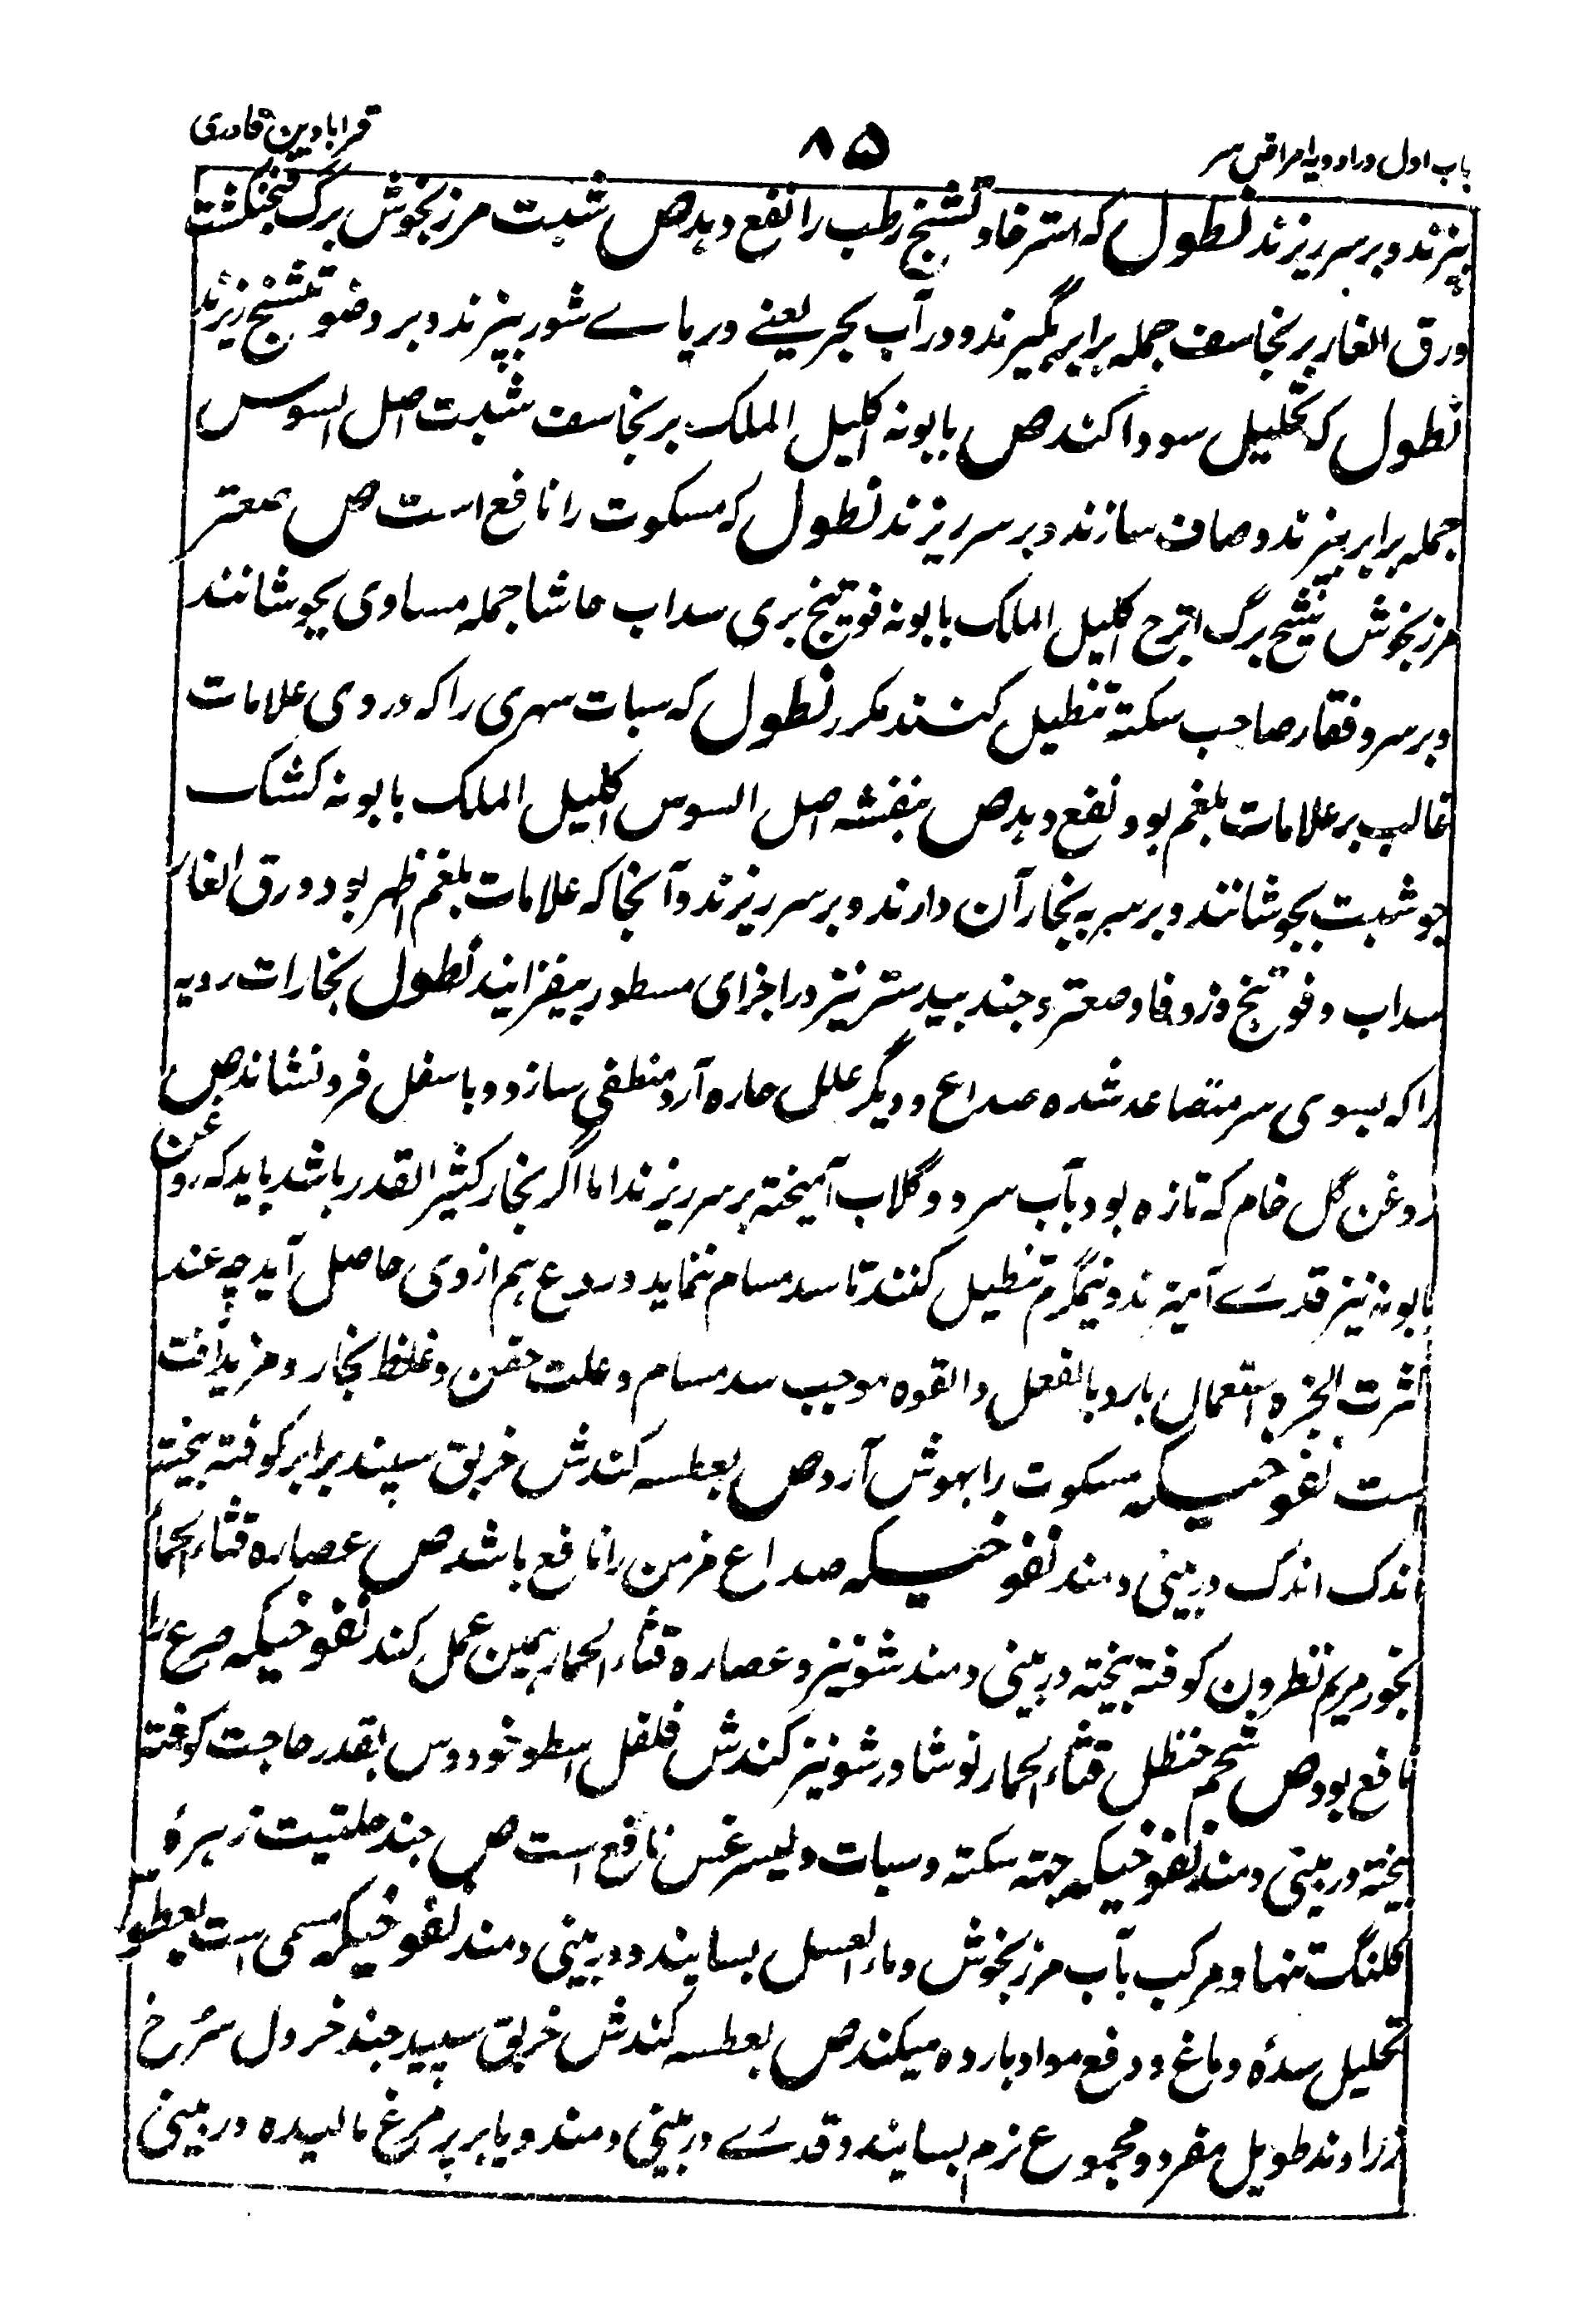 باب اول در ادویه امراض سر
۸۵
قرابادین قادری
بپزند و بر سر ریزند نطول که استرخا و تشنج رطب را نفع دهد ص شبت مرزنجوش برگ فنجنگشت
ورق الغار برنجاسف جمله برابر بگیرند و در آب بحر یعنے دریاے شور بپزند و بر عضو تشنج ریزند
نطول که تحلیل سودا کند ص بابونه اکلیل الملک برنجاسف شبت اصل السوس
جمله برابر بپزند و صاف سازند و بر سر ریزند نطول که مسکوت را نافع است ص صعتر
مرزنجوش شیح برگ اترج اکلیل الملک بابونه فوتنج بری سداب حاشا جمله مساوی بجوشانند
و بر سر و فقار صاحب سکته تنطیل کنند مکرر نطول که سبات سهری را که در وی علامات
غالب بر علامات بلغم بود نفع دهد ص بنفشه اصل السوس اکلیل الملک بابونه کشک
جو شبت بجوشانند و بر سر به بخار آن دارند و بر سر ریزند و آنجا که علامات بلغم اظهر بود ورق الغار
سداب و فوتنج و زوفا و صعتر و جند بیدستر نیز در اجزای مسطور بیفزایند نطول بخارات ردیه
را که بسوی سر متصاعد شده صداع و دیگر علل حاره آرد منطفی سازد و باسفل فرو نشاند ص
روغن گل خام که تازه بود بآب سرد و گلاب آمیخته بر سر ریزند اما اگر بخار کثیر القدر باشد باید که روغن
بابونه نیز قدرے آمیزند و نیمگرم تنطیل کنند تا سد مسام ننماید و ردع هم از وی حاصل آید چه عند
کثرت ابخره استعمال بارد بالفعل و القوه موجب سد مسام و علت حقن و غلظ بخار و مزید آفت
ست نفوخیکه مسکوت را بهوش آرد ص بعطسه کندش خربق سپند برابر کوفته بیخته
اندک اندک در بینی دمند نفوخیکه صداع مزمن را نافع باشد ص عصاره قثاء الحمار
بخور مریم نطرون کوفته بیخته در بینی دمند شونیز و عصاره قثاء الحمار همین عمل کند نفوخیکه صرع را
نافع بود ص شحم حنظل قثاء الحمار نوشادر شونیز کندش فلفل اسطوخودوس بقدر حاجت کوفته
بیخته در بینی دمند نفوخیکه جهته سکته و سبات و لیسرغس نافع است ص جند حلتیت زهرهٔ
کلنگ تنها و مرکب بآب مرزنجوش و ماء العسل بسایند و در بینی دمند نفوخیکه مسمی است بعطوس
تحلیل سدهٔ دماغ و دفع مواد بارده میکند ص بعطسه کندش خربق سپید جند خردل سرخ
زراوند طویل مفرد و مجموع نرم بسایند و قدرے در بینی دمند و یا بر پر مرغ مالیده در بینی